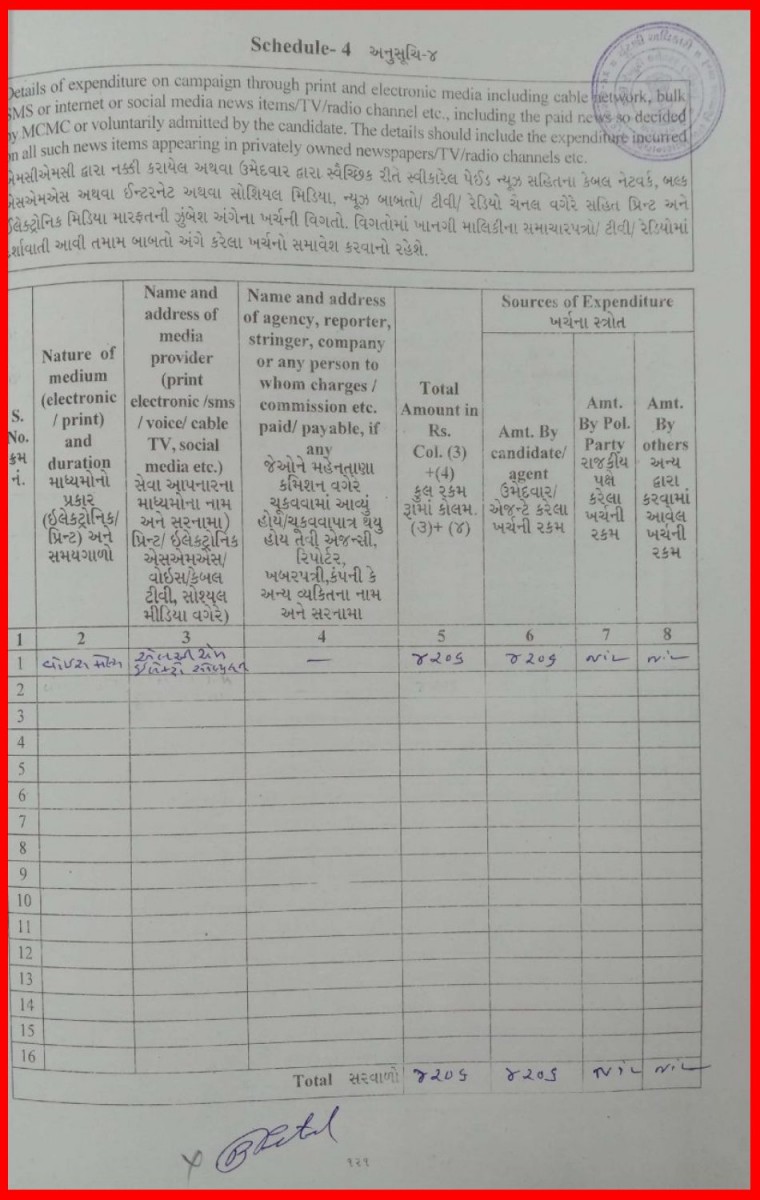 Schedule- 4 અનુસૂચિ-૪
Details of expenditure on campaign through print and electronic media including cable network, bulk
SMS or internet or social media news items/TV/radio channel etc., including the paid news so decided
by MCMC or voluntarily admitted by the candidate. The details should include the expenditure incurred
on all such news items appearing in privately owned newspapers/TV/radio channels etc.
એમસીએમસી દ્વારા નક્કી કરાયેલ અથવા ઉમેદવાર દ્વારા સ્વૈચ્છિક રીતે સ્વીકારેલ પેઈડ ન્યૂઝ સહિતના કેબલ નેટવર્ક, બલ્ક
એસએમએસ અથવા ઈન્ટરનેટ અથવા સોશિયલ મિડિયા, ન્યૂઝ બાબતો/ ટીવી/ રેડિયો ચેનલ વગેરે સહિત પ્રિન્ટ અને
ઈલેક્ટ્રોનિક મિડિયા મારફતની ઝુંબેશ અંગેના ખર્ચની વિગતો. વિગતોમાં ખાનગી માલિકીના સમાચારપત્રો/ ટીવી/ રેડિયોમાં
દર્શાવાતી આવી તમામ બાબતો અંગે કરેલા ખર્ચનો સમાવેશ કરવાનો રહેશે.
S.
No.
ક્રમ
નં.
Nature of
medium
(electronic
/ print)
and
duration
માધ્યમોનો
પ્રકાર
(ઇલેક્ટ્રોનિક/
પ્રિન્ટ) અને
સમયગાળો
Name and
address of
media
provider
(print
electronic /sms
/ voice/ cable
TV, social
media etc.)
સેવા આપનારના
માધ્યમોના નામ
અને સરનામા)
પ્રિન્ટ/ ઈલેક્ટ્રોનિક
એસએમએસ/
વોઇસ/કેબલ
ટીવી, સોશ્યલ
મીડિયા વગેરે)
Name and address
of agency, reporter,
stringer, company
or any person to
whom charges /
commission etc.
paid/ payable, if
any
જેઓને મહેનતાણા
કમિશન વગેરે
ચૂકવવામાં આવ્યું
હોય/ચૂકવવાપાત્ર થયુ
હોય તેવી એજન્સી,
રિપોર્ટર,
ખબરપત્રી,કંપની કે
અન્ય વ્યકિતના નામ
અને સરનામા
Total
Amount in
Rs.
Col. (3)
+(4)
કુલ રકમ
રૂામાં કોલમ.
(૩)+ (૪)
Sources of Expenditure
ખર્ચના સ્ત્રોત
Amt. By
candidate/
agent
ઉમેદવાર/
એજન્ટે કરેલા
ખર્ચની રકમ
Amt.
By Pol.
Party
રાજકીય
પક્ષે
કરેલા
ખર્ચની
રકમ
Amt.
By
others
અન્ય
દ્વારા
કરવામાં
આવેલ
ખર્ચની
રકમ
1 2 3 4 5 6 7 8
1 — ૪૨૦૬ ૪૨૦૬ NIL NIL
2
3
4
5
6
7
8
9
10
11
12
13
14
15
16
Total સરવાળો ૪૨૦૬ ૪૨૦૬ NIL NIL
૧૨૧